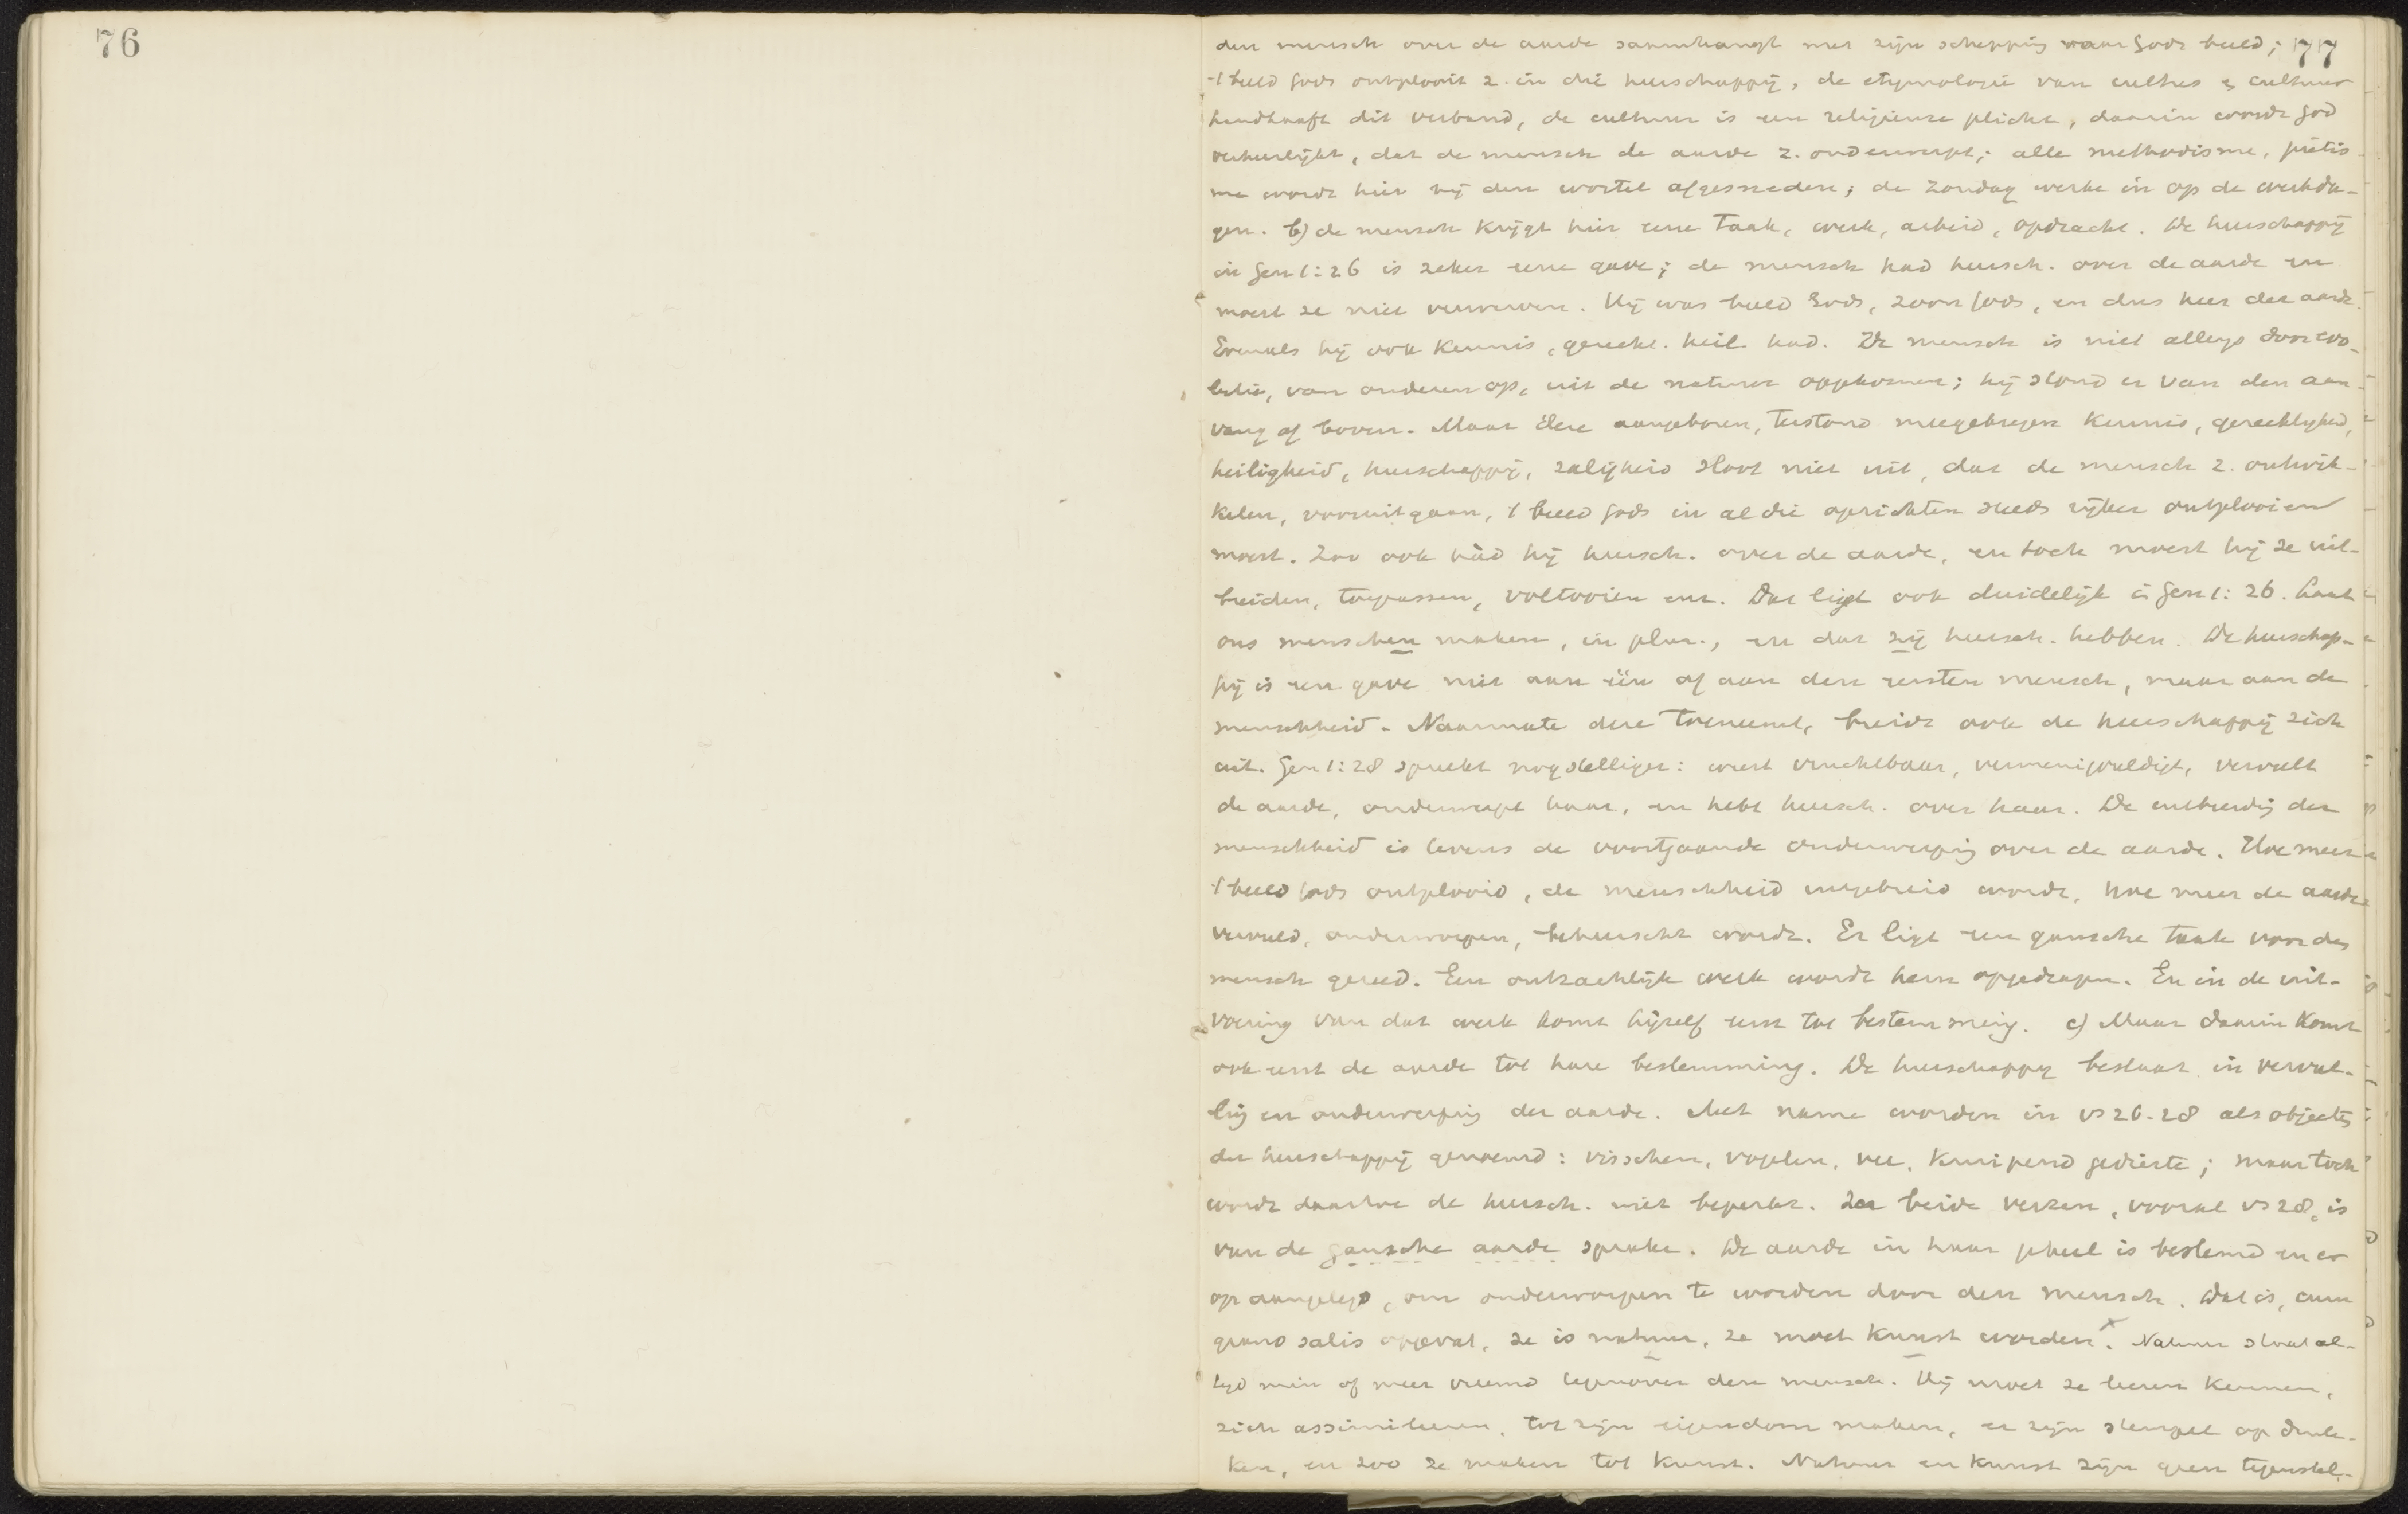 76
77
den mensch over de aarde samenhangt met zijn schepping naar Gods beeld;
't beeld Gods ontplooit z. in die heerschappij, de etymologie van cultus & cultuur
handhaaft dit verband, de cultuur is een religieuze plicht, daarin wordt God
verheerlijkt, dat de mensch de aarde z. onderwerpt; alle methodisme, piëtis-
me wordt hier bij den wortel afgesneden; de Zondag werke in op de werkda-
gen. b) de mensch krijgt hier eene taak, werk, arbeid, opdracht. De heerschappij
in Gen 1:26 is zeker eene gave; de mensch had heersch. over de aarde en
moest ze niet verwerven. Hij was beeld Gods, zoon Gods, en dus heer der aarde.
Evenals hij ook kennis, gerecht. heil. had. De mensch is niet allengs door evo-
lutie, van onderen op, uit de natuur opgekomen; hij stond er van den aan-
vang af boven. Maar deze aangeboren, terstond meegekregen kennis, gerechtigheid,
heiligheid, heerschappij, zaligheid sloot niet uit, dat de mensch z. ontwik-
kelen, vooruitgaan, 't beeld Gods in al die opzichten steeds rijker ontplooien
moest. Zoo ook hàd hij heersch. over de aarde, en toch moest hij ze uit-
breiden, toepassen, voltooien enz. Dat ligt ook duidelijk in Gen 1:26. Laat
ons menschen maken, in plur., en dat zij heersch. hebben. De heerschap-
pij is een gave niet aan één of aan den eersten mensch, maar aan de
menschheid. Naarmate deze toeneemt, breidt ook de heerschappij zich
uit. Gen 1:28 spreekt nog stelliger: weest vruchtbaar, vermenigvuldigt, vervult
de aarde, onderwerpt haar, en hebt heersch. over haar. De uitbreidg der
menschheid is tevens de voortgaande onderwerping over de aarde. Hoe meer
't beeld Gods ontplooid, de menschheid uitgebreid wordt, hoe meer de aarde
vervuld, onderworpen, beheerscht wordt. Er ligt een gansche taak voor den
mensch gereed. Een ontzachlijk werk wordt hem opgedragen. En in de uit-
voering van dat werk komt hijzelf eerst tot bestemming. c) Maar daarin komt
ook eerst de aarde tot hare bestemming. De heerschappy bestaat in vervul-
ling en onderwerping der aarde. Met name worden in vs 26-28 als objecten
der heerschappij genoemd: visschen, vogelen, vee, kruipend gedierte; maar toch
wordt daartoe de heersch. niet beperkt. In beide verzen, vooral vs 28, is
van de gansche aarde sprake. De aarde in haar geheel is bestemd en er
op aangelegd, om onderworpen te worden door den mensch. Dat is, cum
grano salis opgevat, ze is natuur, ze moet kunst worden x. Natuur staat al-
tijd min of meer vreemd tegenover den mensch. Hij moet ze leeren kennen,
zich assimileeren, tot zijn eigendom maken, er zijn stempel op druk-
ken, en zoo ze maken tot kunst. Natuur en kunst zijn geen tegenstel-